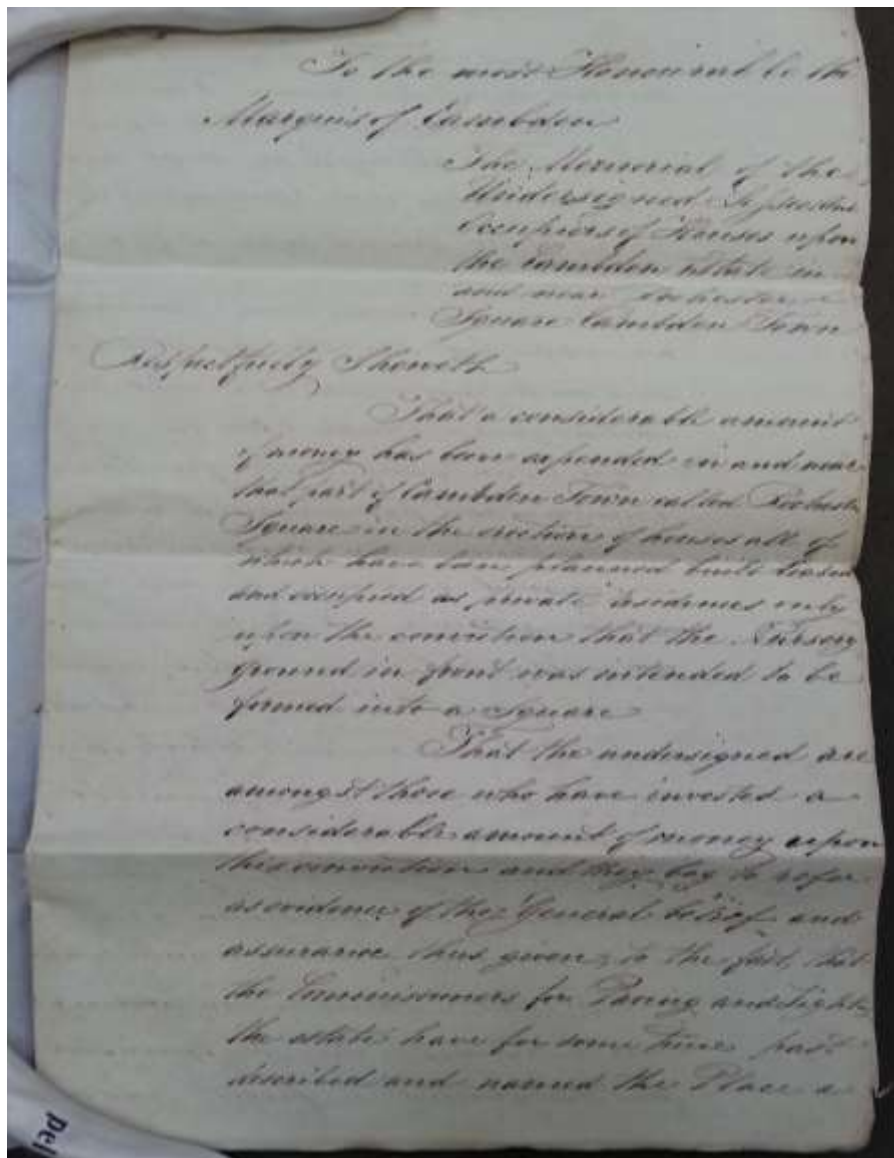 To the most Honourable the
Marquis of Cambden
The Memorial of the
Undersigned Lessees and
Occupiers of Houses upon
the Cambden Estate in
and near Rochester
Square Cambden Town
Respectfully Sheweth
That a considerable amount
of money has been expended in and near
that part of Cambden Town called Rochester
Square in the erection of houses all of
which have been planned built leased
and occupied as private residences only
upon the conviction that the Nursery
ground in front was intended to be
formed into a Square
That the undersigned are
amongst those who have invested a
considerable amount of money upon
this conviction and they beg to refer
as evidence of the General belief and
assurance thus given, to the fact, that
the Commissioners for Paving and Lighting
the estate have for some time past
described and named the Place a
del